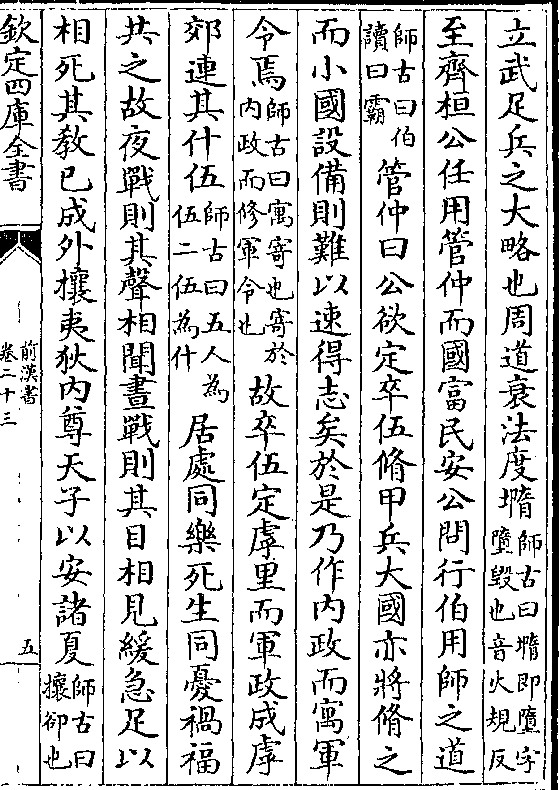 立武足兵之大略也周道衰法度墮師古曰墮即墮字墮毁也音火規反
至齊桓公任用管仲而國富民安公問行伯用師之道
師古曰伯讀曰霸管仲曰公欲定卒伍脩甲兵大國亦將脩之
而小國設備則難以速得志矣於是乃作内政而寓軍
令焉師古曰寓寄也寄於内政而修軍令也故卒伍定虖里而軍政成虖
郊連其什伍師古曰五人為伍二伍為什居處同樂死生同憂禍福
共之故夜戰則其聲相聞晝戰則其目相見緩急足以
相死其教已成外攘夷狄内尊天子以安諸夏師古曰攘卻也
欽定四庫全書
前漢書
卷二十三
五